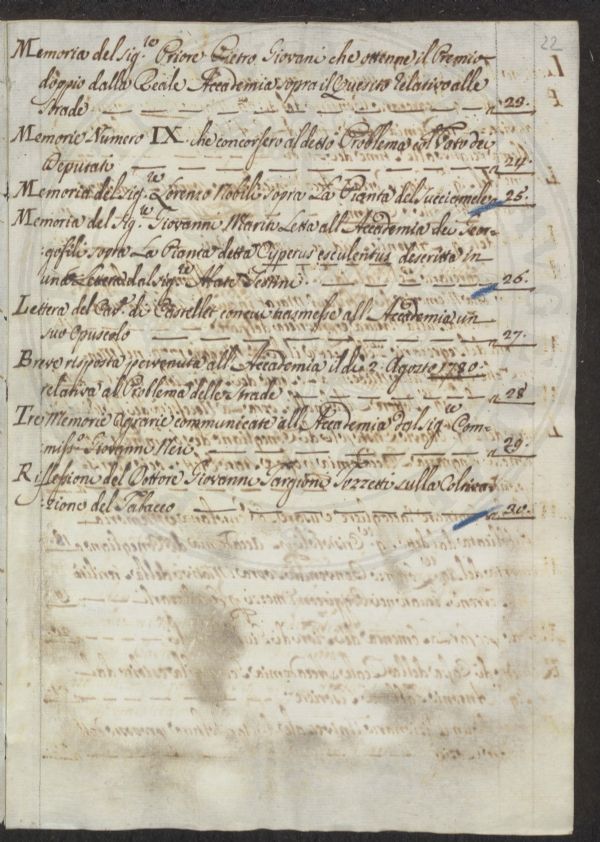 22
Memoria del Sig.re Priore Pietro Giovani che ottenne il Premio
doppio dalla Reale Accademia sopra il Quesito relativo alle
Strade — n 23.
Memorie Numero IX. che concorsero al detto Problema col Voto dei
Deputati — n 24.
Memoria del Sig.re Lorenzo Nobili sopra La Pianta del Succiamele n 25.
Memoria del Sig.re Giovanni Mariti Letta all'Accademia dei Geor-
gofili sopra La Pianta detta Cyperus esculentus descritta in
una Lettera dal Sig.re Abate Sestini — n 26.
Lettera del Cav.re di Castellet con cui trasmesse all'Accademia un
suo Opuscolo — n 27.
Breve risposta pervenuta all'Accademia il dì 2. Agosto 1780.
relativa al Problema delle strade — n 28
Tre Memorie Agrarie communicate all'Accademia dal Sig.re Com-
miss.o Giovanni Neri — n 29.
Riflessioni del Dottore Giovanni Targioni Tozzetti sulla Coltiva-
zione del Tabacco — n 30.